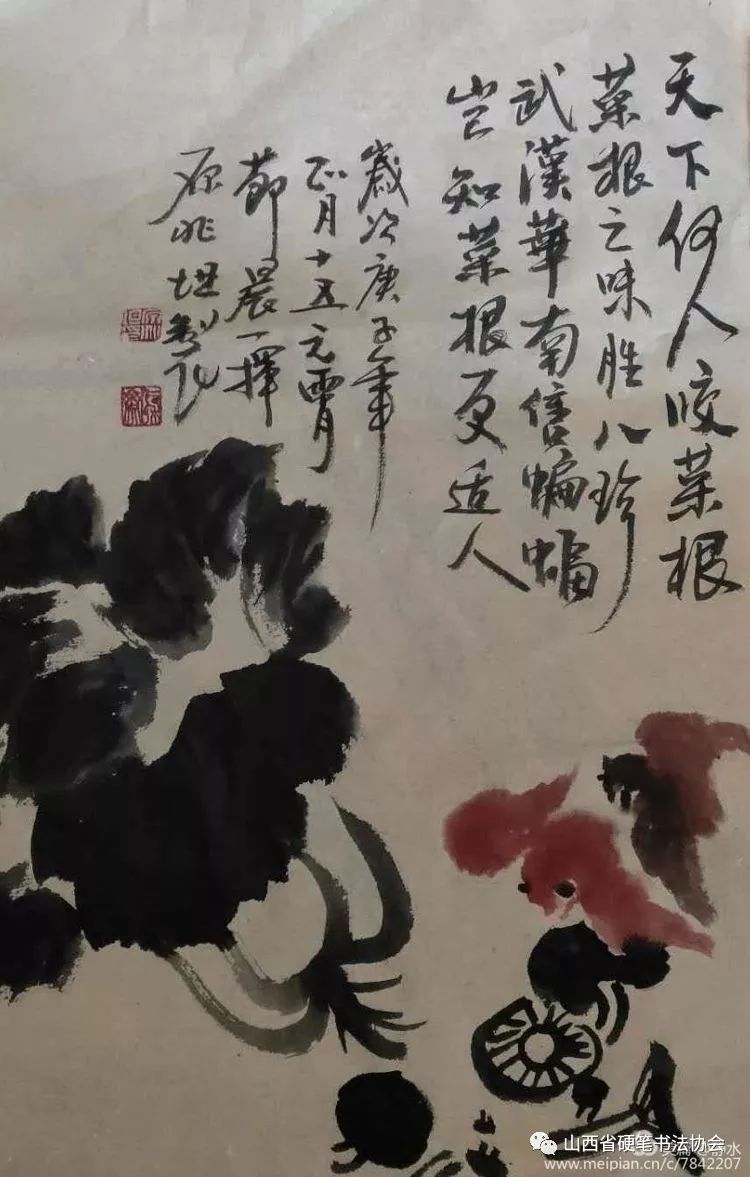 天下何人咬菜根
菜根之味胜八珍
武漢華南售蝙蝠
豈知菜根更适人
歲次庚子年
正月十五元霄
節晨一揮
原兆坦
山西省硬笔书法协会
www.meipian.cn/c/7842207